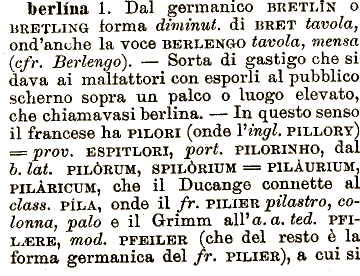 berlína 1. Dal germanico BRETLÌN o
BRETLING forma diminut. di BRET tavola,
ond'anche la voce BERLENGO tavola, mensa
(cfr. Berlengo). — Sorta di gastigo che si
dava ai malfattori con esporli al pubblico
scherno sopra un palco o luogo elevato,
che chiamavasi berlina. — In questo senso
il francese ha PILORI (onde l'ingl. PILLORY)
= prov. ESPITLORI, port. PILORINHO, dal
b. lat. PILÒRUM, SPILÒRIUM = PILÀURIUM,
PILÀRICUM, che il Ducange connette al
class. PÍLA, onde il fr. PILIER pilastro, co-
lonna, palo e il Grimm all'a. a. ted. PFI-
LÆRE, mod. PFEILER (che del resto è la
forma germanica del fr. PILIER), a cui si